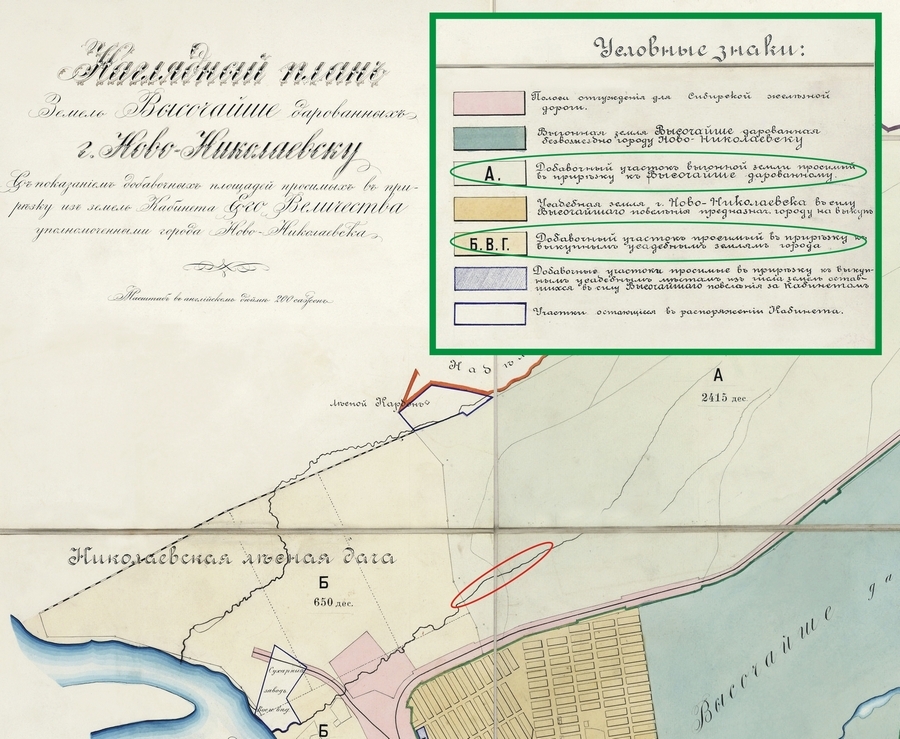 Наглядный планъ
Земель Высочайше дарованныхъ
г. Ново-Николаевску
Съ показаніемъ добавочныхъ площадей просимыхъ въ при-
рѣзку изъ земель Кабинета Его Величества
уполномоченными города Ново-Николаевска
Масштабъ въ англійскомъ дюймѣ 200 сажень
Условные знаки:
Полоса отчужденія для Сибирской желѣзной
дороги.
Выгонная земля Высочайше дарованная
безвозмездно городу Ново-Николаевску
А.
Добавочный участокъ выгонной земли просимый
въ прирѣзку къ Высочайше дарованному.
Усадебная земля, г. Ново-Николаевска въ силу
Высочайшаго повелѣнія предназнач. городу на выкупъ
Б.В.Г.
Добавочный участокъ просимый въ прирѣзку къ
выкупнымъ усадебнымъ землямъ города
Добавочные участки просимые въ прирѣзку къ выкуп-
нымъ усадебнымъ мѣстамъ, изъ числа земель остав-
шихся въ силу Высочайшаго повелѣнія за Кабинетомъ
Участки остающіеся въ распоряженіи Кабинета.
лѣсной Кордонъ
А
2415 дес.
Николаевская лѣсная дача
Б
650 дес.
Высочайше да
Сухарный
заводъ
Б